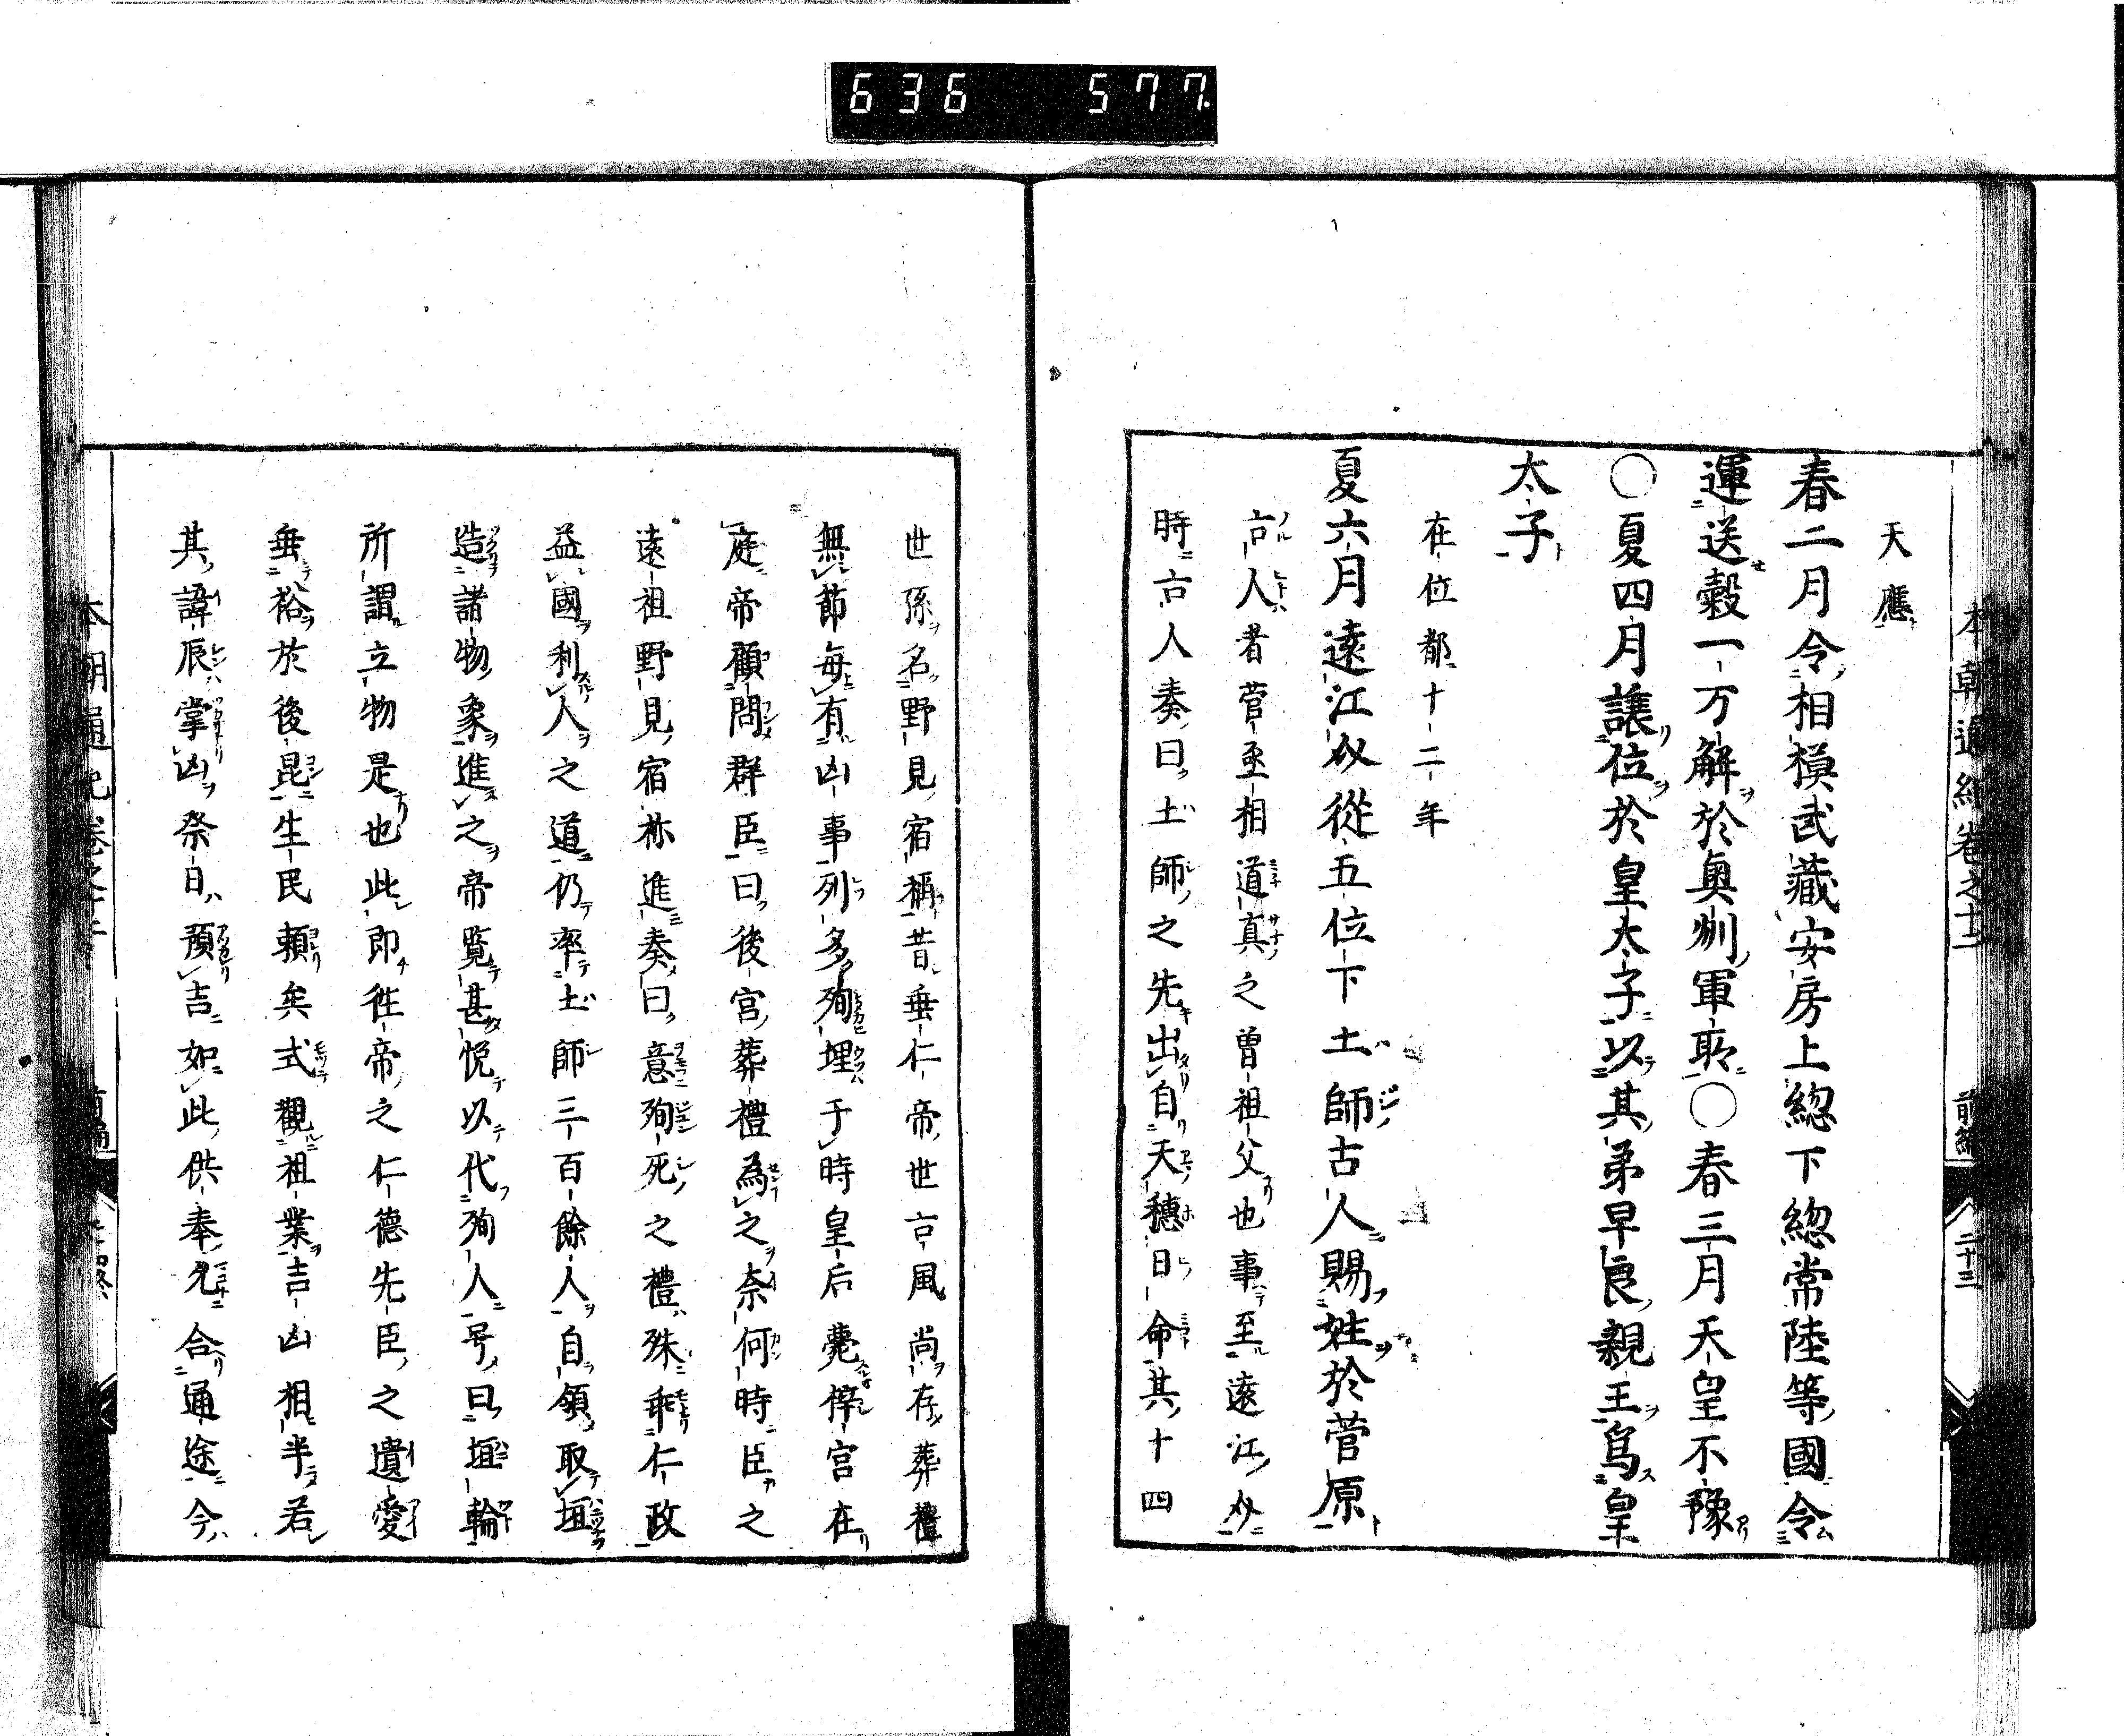 636 577.
本朝通紀卷之十二 前編 二十三
天應
春二月令相模武藏安房上総下総常陸等國令
運送穀一万解於奥州軍所〇春三月天皇不豫
〇夏四月讓位於皇太子以其弟早良親王為皇
太子
在位都十二年
夏六月遠江介從五位下土師古人賜姓於菅原
古人者菅丞相道真之曽祖父也事至遠江介
時古人奏曰土師之先出自天穗日命其十四
世孫名野見宿禰昔垂仁帝世古風尚存葬禮
無節每有凶事列多殉埋于時皇后薨梓宮在
庭帝顧問群臣曰後宮葬禮為之奈何時臣之
遠祖野見宿祢進奏曰意殉死之禮殊乖仁政
益國利人之道仍率土師三百餘人自領取埴
造諸物象進之帝覧甚悦以代殉人号曰埴輪
所謂立物是也此即往帝之仁德先臣之遺愛
垂裕於後昆生民頼矣式觀祖業吉凶相半若
其諱辰掌凶祭日預吉如此供奉允合通途今